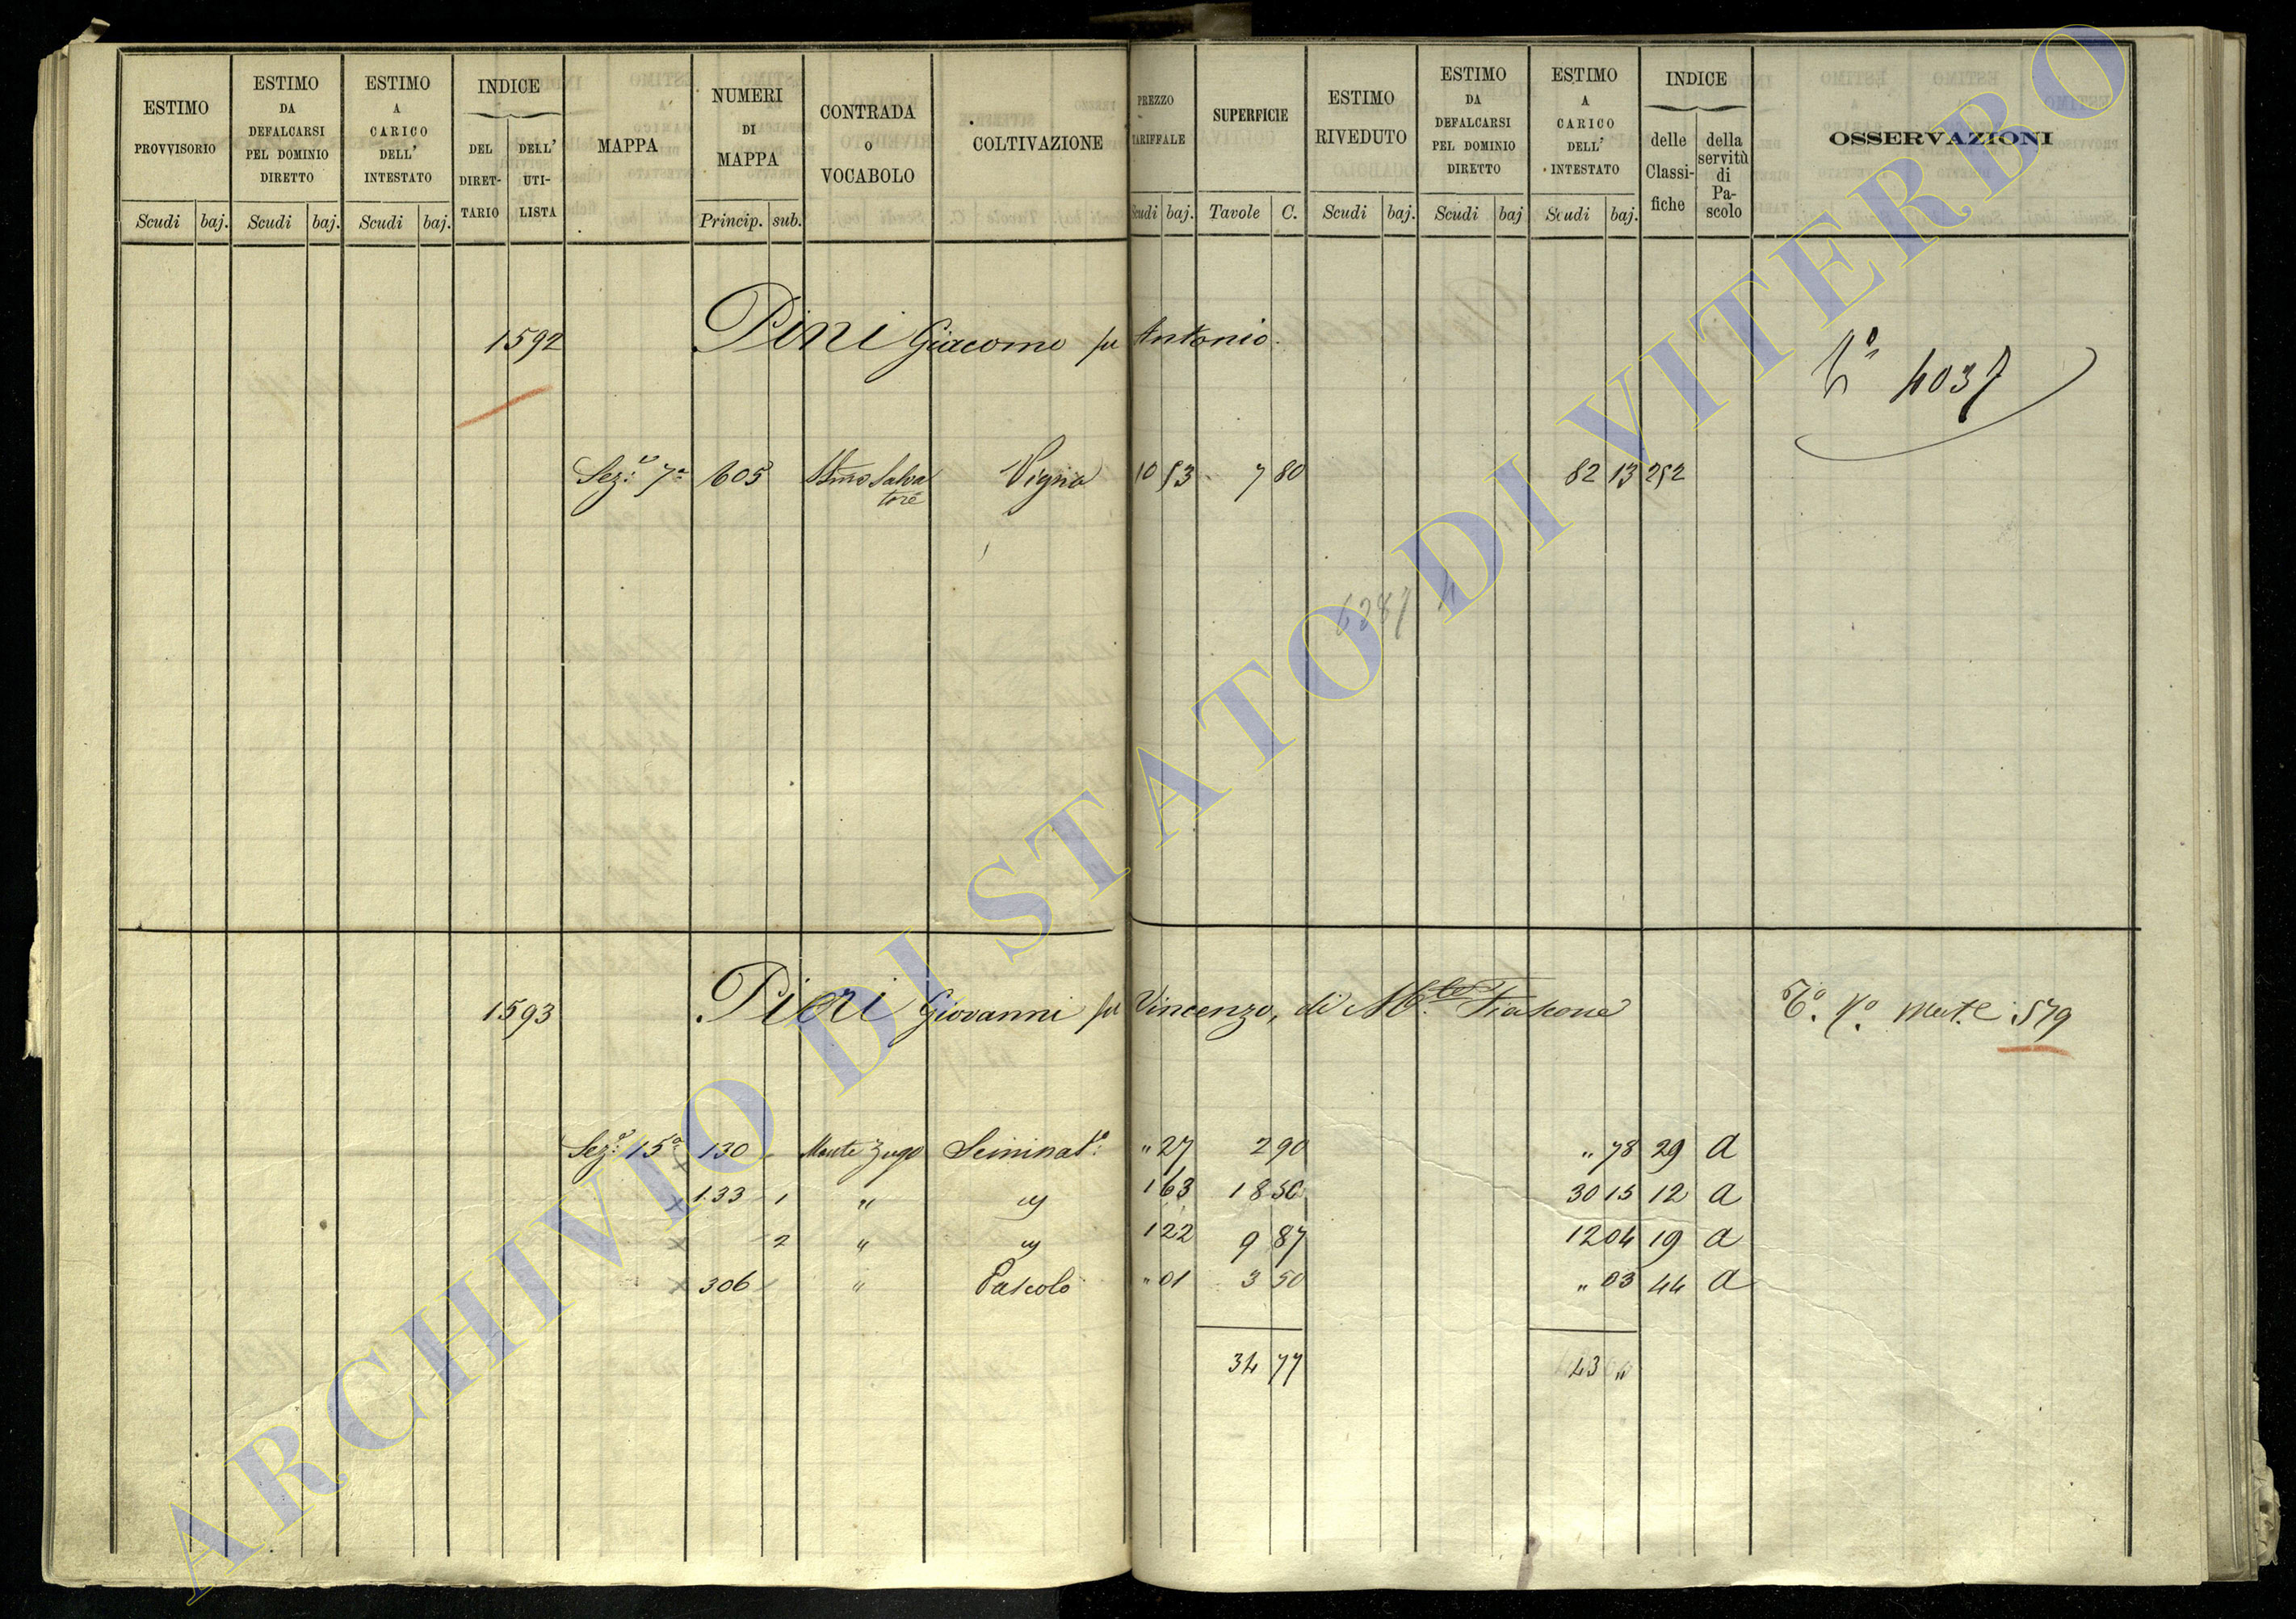 ESTIMO PROVVISORIO
ESTIMO DA DEFALCARSI PEL DOMINIO DIRETTO
ESTIMO A CARICO DELL' INTESTATO
INDICE
DEL DIRET-TARIO
DELL' UTI-LISTA
MAPPA
NUMERI DI MAPPA
CONTRADA O VOCABOLO
COLTIVAZIONE
PREZZO TARIFFALE
SUPERFICIE
ESTIMO RIVEDUTO
ESTIMO DA DEFALCARSI PEL DOMINIO DIRETTO
ESTIMO A CARICO DELL' INTESTATO
INDICE
delle Classi-fiche
della servitù di Pa-scolo
OSSERVAZIONI
Scudi baj. Scudi baj. Scudi baj. Princip. sub. Scudi baj. Tavole C. Scudi baj. Scudi baj Scudi baj.
1592 Pini Giacomo fu Antonio
4037
Sez: 7a 605 Salva Vigna 10 53 7 80 82 13 252
tore
1593 Pieri Giovanni fu Vincenzo, di M.te Fiascone
579
Sez: 15a 130 Monte Zugo Seminat: " 27 2 90 " 78 29 a
133 1 " " 1 63 18 50 30 15 12 a
2 " " 1 22 9 87 12 04 19 a
306 " Pascolo " 01 3 50 " 03 44 a
34 77 43 "
ARCHIVIO DI STATO DI VITERBO